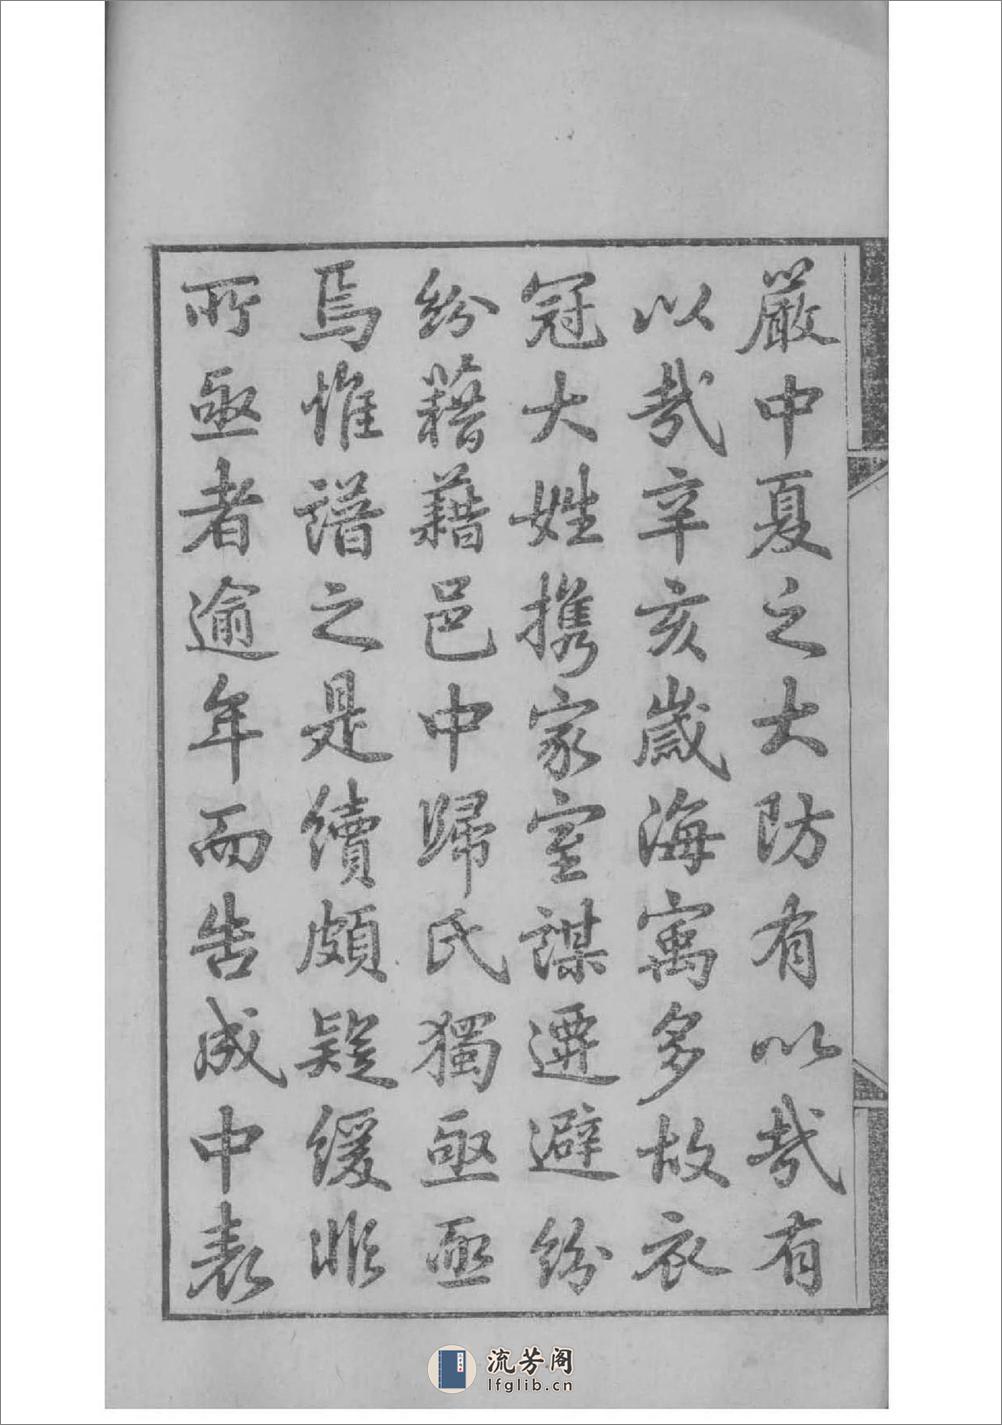 嚴中夏之大防有以哉有
以哉辛亥歲海寓多故衣
冠大姓携家室謀遷避紛
紛藉藉邑中歸氏獨亟亟
焉惟譜之是續頗疑緩非
所亟者逾年而告成中表
流芳阁
lfglib.cn